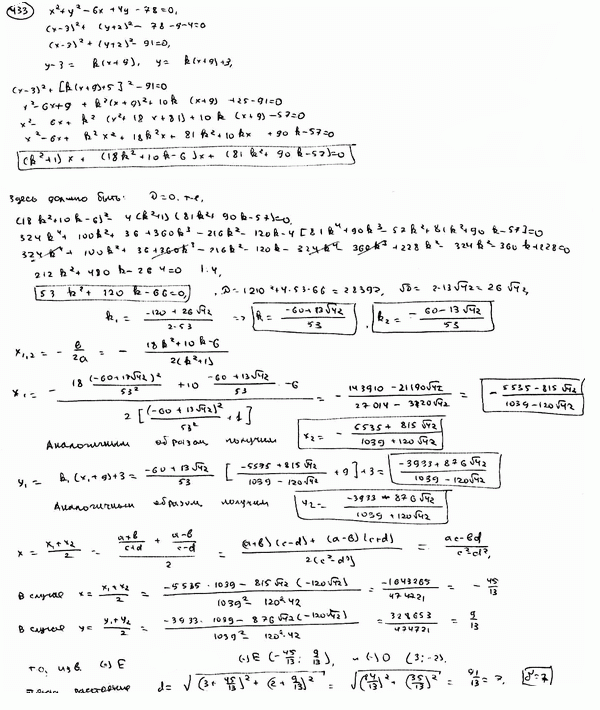 433 x²+y²-6x+4y-78=0,
(x-3)²+(y+2)²-78-9-4=0
(x-3)²+(y+2)²-91=0,
y-3=k(x+9), y=k(x+9)+3,
(x-3)²+[k(x+9)+5]²-91=0
x²-6x+9+k²(x+9)²+10k(x+9)+25-91=0
x²-6x+k²(x²+18x+81)+10k(x+9)-57=0
x²-6x+k²x²+18k²x+81k²+10kx+90k-57=0
(k²+1)x+(18k²+10k-6)x+(81k²+90k-57)=0
Здесь должно быть: D=0, т.е,
(18k²+10k-6)²-4(k²+1)(81k²+90k-57)=0,
324k⁴+100k²+36+360k³-216k²-120k-4[81k⁴+90k³-57k²+81k²+90k-57]=0
324k⁴+100k²+36+360k³-216k²-120k-324k⁴-360k³+228k²-324k²-360k+228=0
212k²+480k-264=0 1:4,
53k²+120k-66=0, D=120²+4·53·66=28392, √D=2·13√42=26√42,
k₁=(-120+26√42)/(2·53) => k=(-60+13√42)/53, k₂=-(60-13√42)/53
x₁,₂=-b/2a=-(18k²+10k-6)/(2(k²+1))
x₁=-(18(-60+13√42)²/53²+10(-60+13√42)/53-6)/(2[(-60+13√42)²/53²+1])=-(143910-21190√42)/(27014-3120√42)=-(5535-815√42)/(1039-120√42)
Аналогичным образом получим x₂=-(5535+815√42)/(1039+120√42)
y₁=k₁(x₁+9)+3=(-60+13√42)/53[(-5535+815√42)/(1039-120√42)+9]+3=(-3933+876√42)/(1039-120√42)
Аналогичным образом получим y₂=(-3933-876√42)/(1039+120√42)
x=(x₁+x₂)/2=((a+b)/(c+d)+(a-b)/(c-d))/2=((a+b)(c-d)+(a-b)(c+d))/(2(c²-d²))=(ac-bd)/(c²-d²),
В случае x=(x₁+x₂)/2=(-5535·1039-815√42(-120√42))/(1039²-120²·42)=-1643265/474721=-45/13
В случае y=(y₁+y₂)/2=(-3933·1039-876√42(-120√42))/(1039²-120²·42)=328653/474721=9/13
(·)E (·)E(-45/13; 9/13), (·)O (3;-2),
расстояние d=√((3+45/13)²+(2+9/13)²)=√((84/13)²+(35/13)²)=91/13=7, d=7